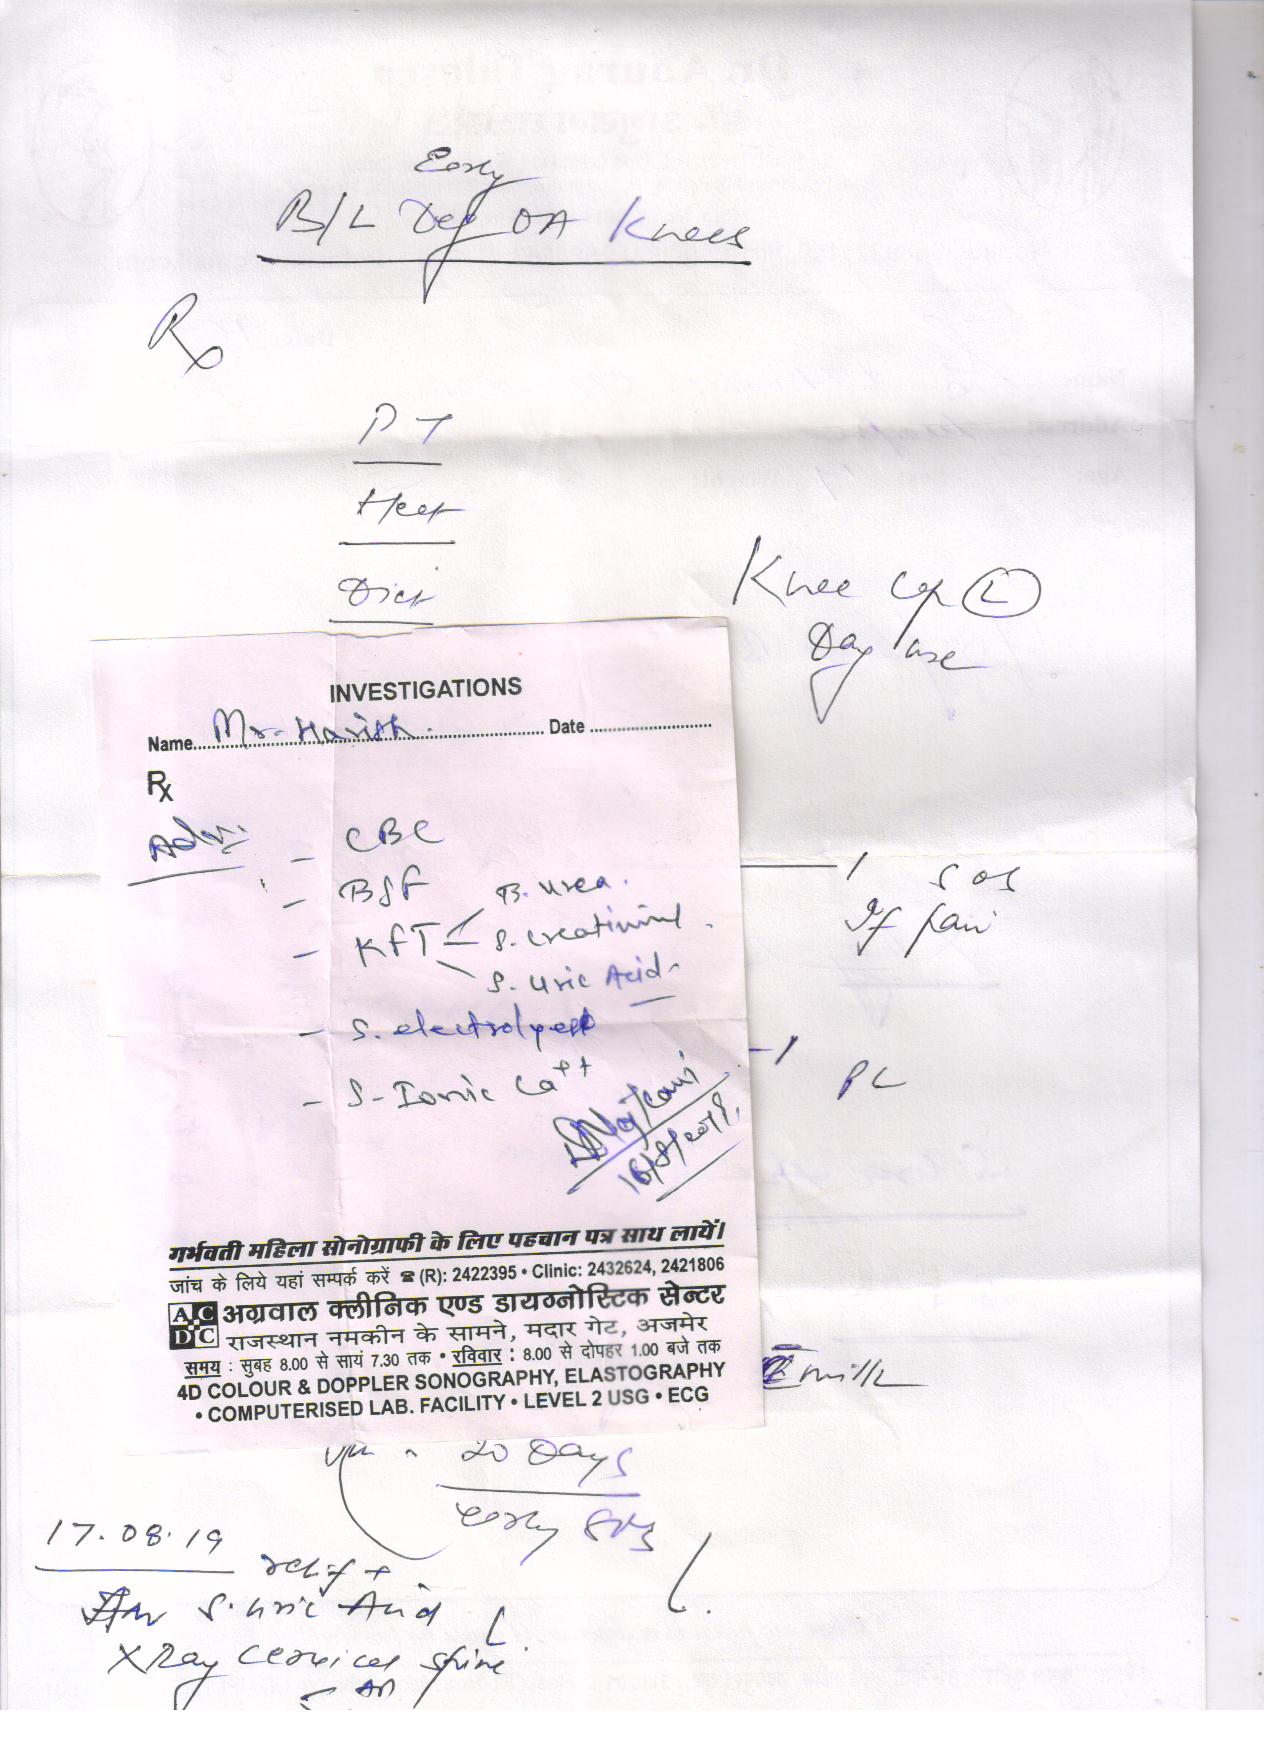 Early
B/L Deg OA Knees
Rx
PT
Heat
Diet
Knee Cap (L)
Day use
INVESTIGATIONS
Name Mr. Harish Date
Rx
Adv.
- CBC
- BSF
- KFT B. urea.
S. Creatinine
S. Uric Acid
- S. electrolytes
- S-Ionic Ca++
16/8/2019
1 SOS
If pain
-1 PC
गर्भवती महिला सोनोग्राफी के लिए पहचान पत्र साथ लायें।
जांच के लिये यहां सम्पर्क करें ☎ (R): 2422395 • Clinic: 2432624, 2421806
ACDC अग्रवाल क्लीनिक एण्ड डायग्नोस्टिक सेन्टर
राजस्थान नमकीन के सामने, मदार गेट, अजमेर
समय : सुबह 8.00 से सायं 7.30 तक • रविवार : 8.00 से दोपहर 1.00 बजे तक
4D COLOUR & DOPPLER SONOGRAPHY, ELASTOGRAPHY
• COMPUTERISED LAB. FACILITY • LEVEL 2 USG • ECG
milk
20 Days
early SOS
17.08.19
relief +
S. Uric Acid
X Ray Cervical Spine